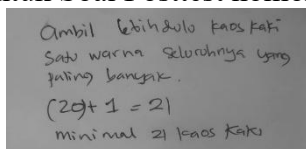 ambil lebih dulu kaos kaki
satu warna seluruhnya yang
paling banyak.
(20)+ 1 = 21
minimal 21 kaos kaki